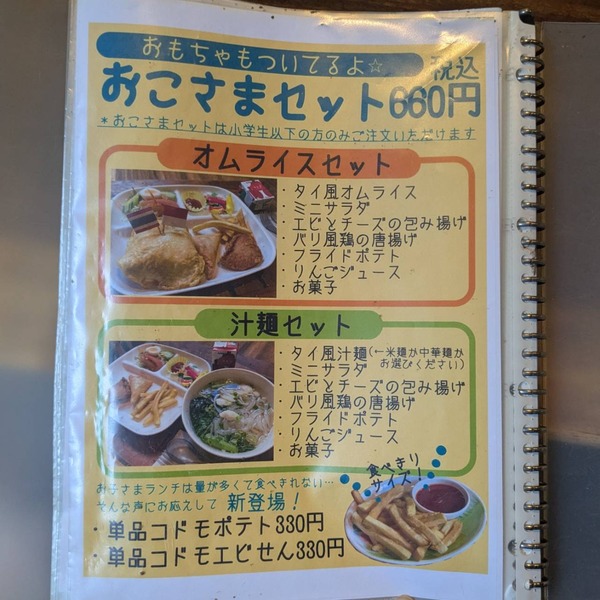 おもちゃもついてるよ☆
おこさまセット660円 税込
*おこさまセットは小学生以下の方のみご注文いただけます
オムライスセット
・タイ風オムライス
・ミニサラダ
・エビとチーズの包み揚げ
・バリ風鶏の唐揚げ
・フライドポテト
・りんごジュース
・お菓子
汁麺セット
・タイ風汁麺(←米麺か中華麺か
お選びください)
・ミニサラダ
・エビとチーズの包み揚げ
・バリ風鶏の唐揚げ
・フライドポテト
・りんごジュース
・お菓子
お子さまランチは量が多くて食べきれない…
そんな声にお応えして 新登場!
食べきり
サイズ!
・単品コドモポテト330円
・単品コドモエビせん330円